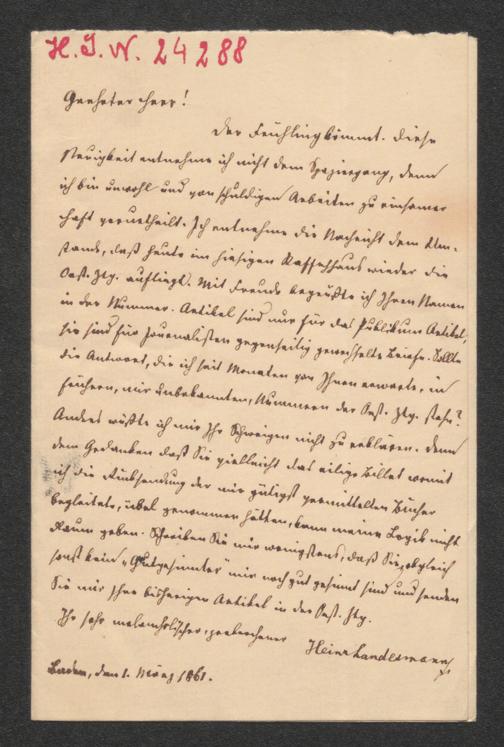 H. I. N. 24288
Geehrter Herr!
Der Frühling kommt. Diese
Neuigkeit entnehme ich nicht dem Spaziergang, denn
ich bin unwohl und von schuldigen Arbeiten zu einsamer
Haft verurtheilt. Ich entnehme die Nachricht dem Um-
stande, daß heute im hiesigen Kaffehhaus wieder die
Ost. Ztg. aufliegt. Mit Freude begrüßte ich Ihren Namen
in der Nummer. Artikel sind nur für das Publikum Artikel,
sie sind für Journalisten gegenseitig gewechselte Briefe. Sollte
die Antwort, die ich seit Monaten von Ihnen erwarte, in
frühern, mir unbekannten, Nummern der Ost. Ztg. stehn?
Anders wüßte ich mir Ihr Schweigen nicht zu erklären. Denn
dem Gedanken daß Sie vielleicht das eilige Billet womit
ich die Rücksendung der mir gütigst vermittelten Bücher
begleitete, übel genommen hätten, kann meine Logik nicht
Raum geben. Schreiben Sie mir wenigstens, daß Sie, obgleich
sonst kein „Gutgesinnter" mir noch gut gesinnt sind und senden
Sie mir Ihre bisherigen Artikel in der Ost. Ztg.
Ihr sehr melancholischer,
Heinr Landesmann
Baden, den 1. März 1861.